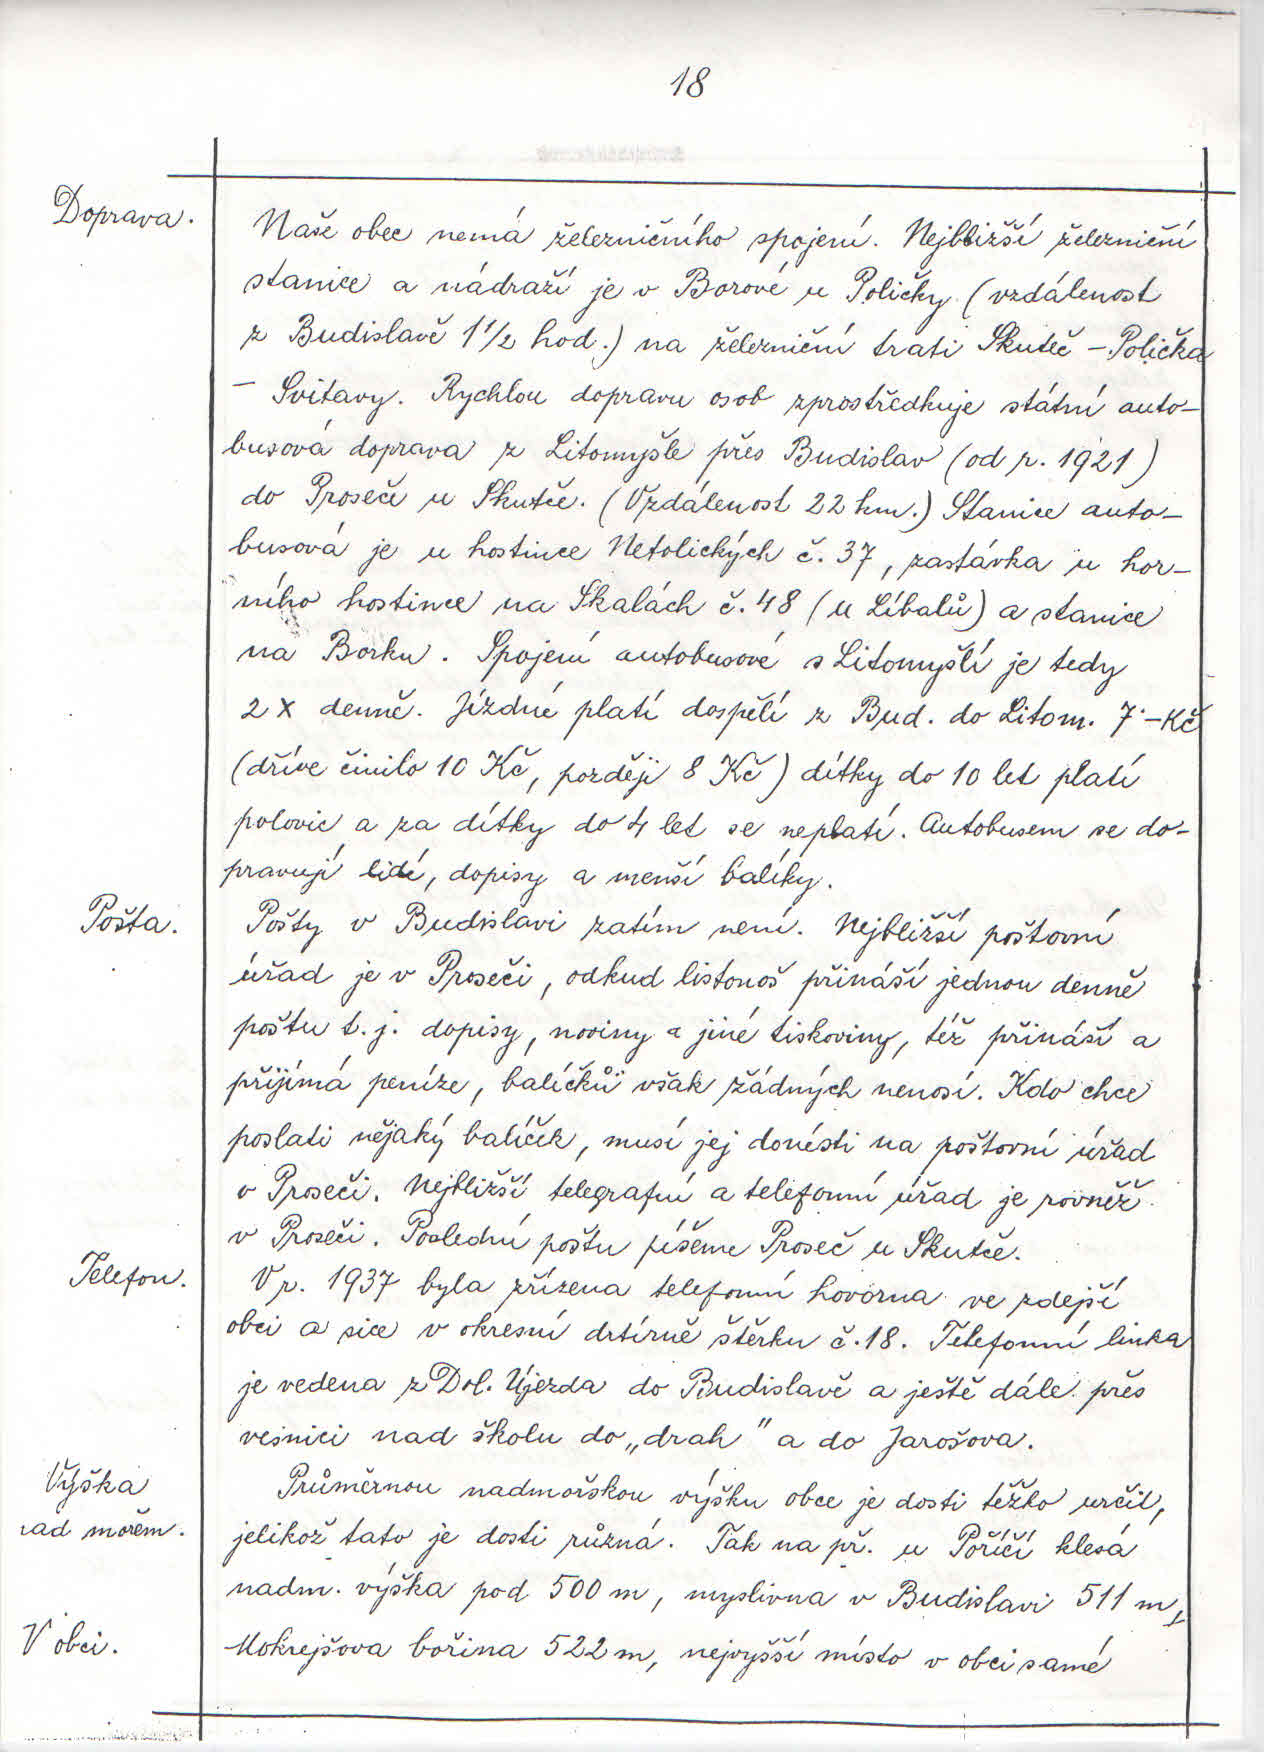 18
Doprava.
Naše obec nemá železničního spojení. Nejbližší železniční
stanice a nádraží je v Borové u Poličky (vzdálenost
z Budislavě 1 1/2 hod.) na železniční trati Skuteč - Polička
- Svitavy. Rychlou dopravu osob zprostředkuje státní auto-
busová doprava z Litomyšle přes Budislav (od r. 1921)
do Proseče u Skutče. (Vzdálenost 22 km.) Stanice auto-
busová je u hostince Netolických č. 37, zastávka u hor-
ního hostince na Skalách č. 48 (u Líbalů) a stanice
na Borku. Spojení autobusové s Litomyšlí je tedy
2 x denně. Jízdné platí dospělí z Bud. do Litom. 7·- Kč
(dříve činilo 10 Kč, později 8 Kč) dítky do 10 let platí
polovic a za dítky do 4 let se neplatí. Autobusem se do-
pravují lidé, dopisy a menší balíky.
Pošta.
Pošty v Budislavi zatím není. Nejbližší poštovní
úřad je v Proseči, odkud listonoš přináší jednou denně
poštu t. j. dopisy, noviny a jiné tiskoviny, též přináší a
přijímá peníze, balíčků však žádných nenosí. Kdo chce
poslati nějaký balíček, musí jej donésti na poštovní úřad
v Proseči. Nejbližší telegrafní a telefonní úřad je rovněž
v Proseči. Poslední poštu píšeme Proseč u Skutče.
Telefon.
V r. 1937 byla zřízena telefonní hovorna ve zdejší
obci a sice v okresní drtírně štěrku č. 18. Telefonní linka
je vedena z Dol. Újezda do Budislavě a ještě dále přes
vesnici nad školu do „drah" a do Jarošova.
Výška
nad mořem.
Průměrnou nadmořskou výšku obce je dosti těžko určit,
jelikož tato je dosti různá. Tak na př. u Poříčí klesá
nadm. výška pod 500 m, myslivna v Budislavi 511 m,
V obci.
Mokrejšova bořina 522 m, nejvyšší místo v obci samé